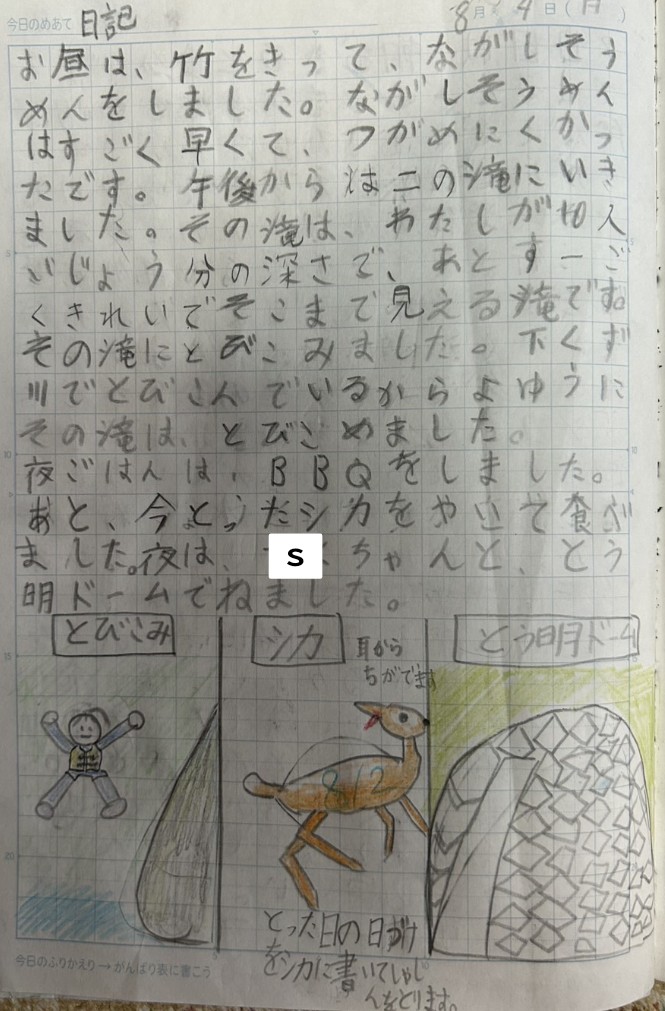 今日のめあて 日記 8月4日(月)
お昼は、竹をきって、ながしそう
めんをしました。ながしそうめん
はすごく早くて、つがめにくかっ
たです。午後からは二の滝にいき
ました。その滝は、わたしが切人
いじょう分の深さで、あとすーご
くきれいでそこまで見える滝です。
その滝にとびこみました。下くず
川でとびこんでいるからよゆうに
その滝は、とびこめました。
夜ごはんは、BBQをしました。
あと、今とったシカをやいて食べ
ました。夜は、sちゃんと、とう
明ドームでねました。
とびこみ
シカ
耳から
ちがでます
とう明ドーム
812
とった日の日づけ
をシカに書いてしゃし
んをとります。
今日のふりかえり→がんばり表に書こう